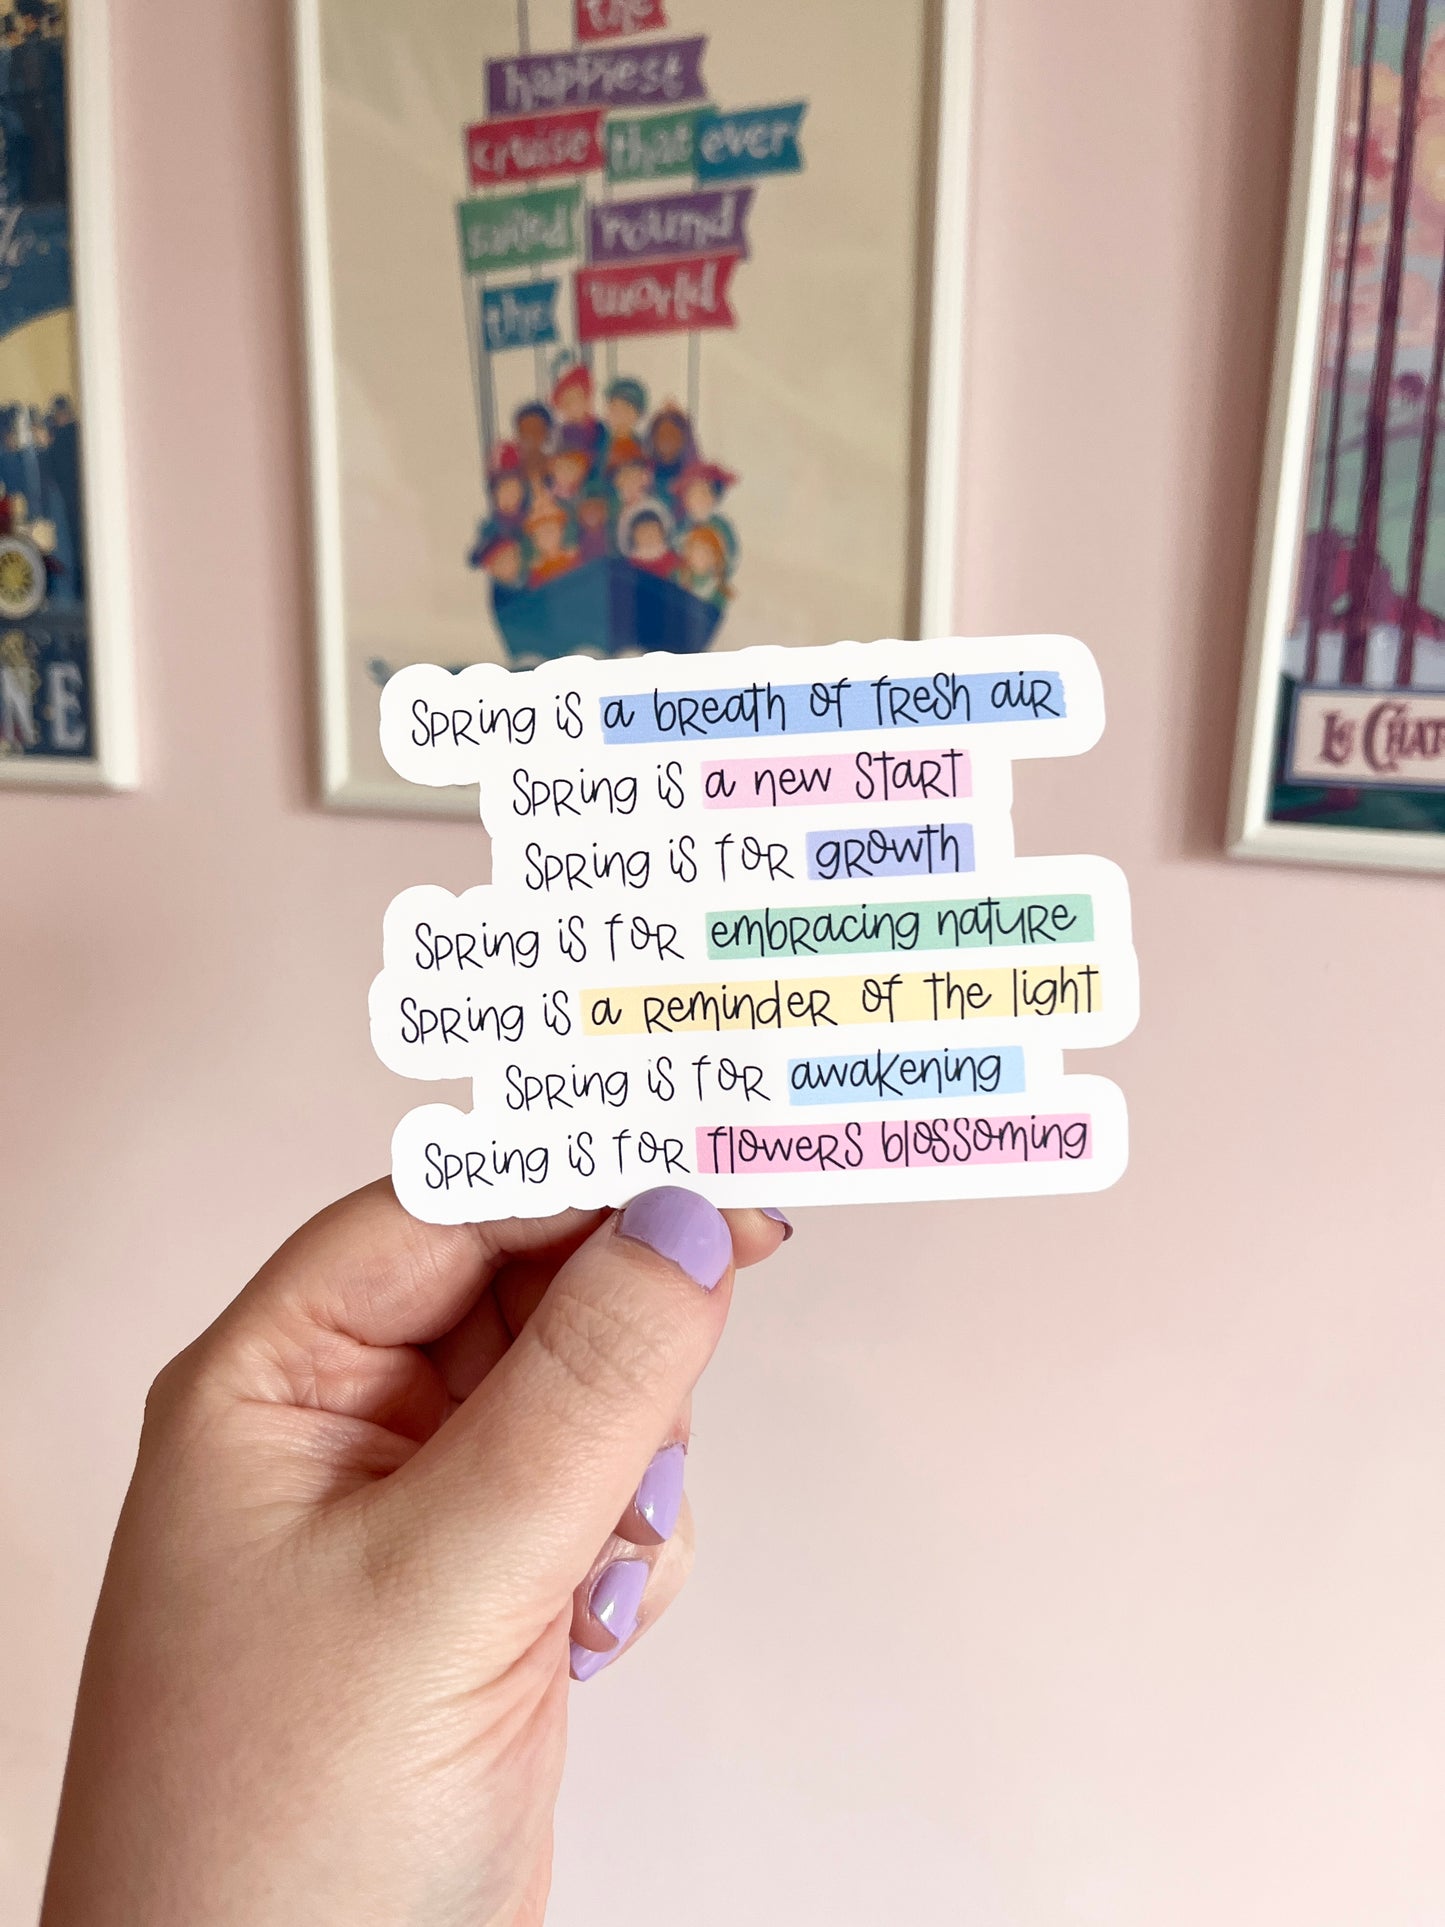 the
happiest
cruise that ever
sailed round
the world
NE
Le Chat
Spring is a breath of fresh air
Spring is a new start
Spring is for growth
Spring is for embracing nature
Spring is a reminder of the light
Spring is for awakening
Spring is for flowers blossoming